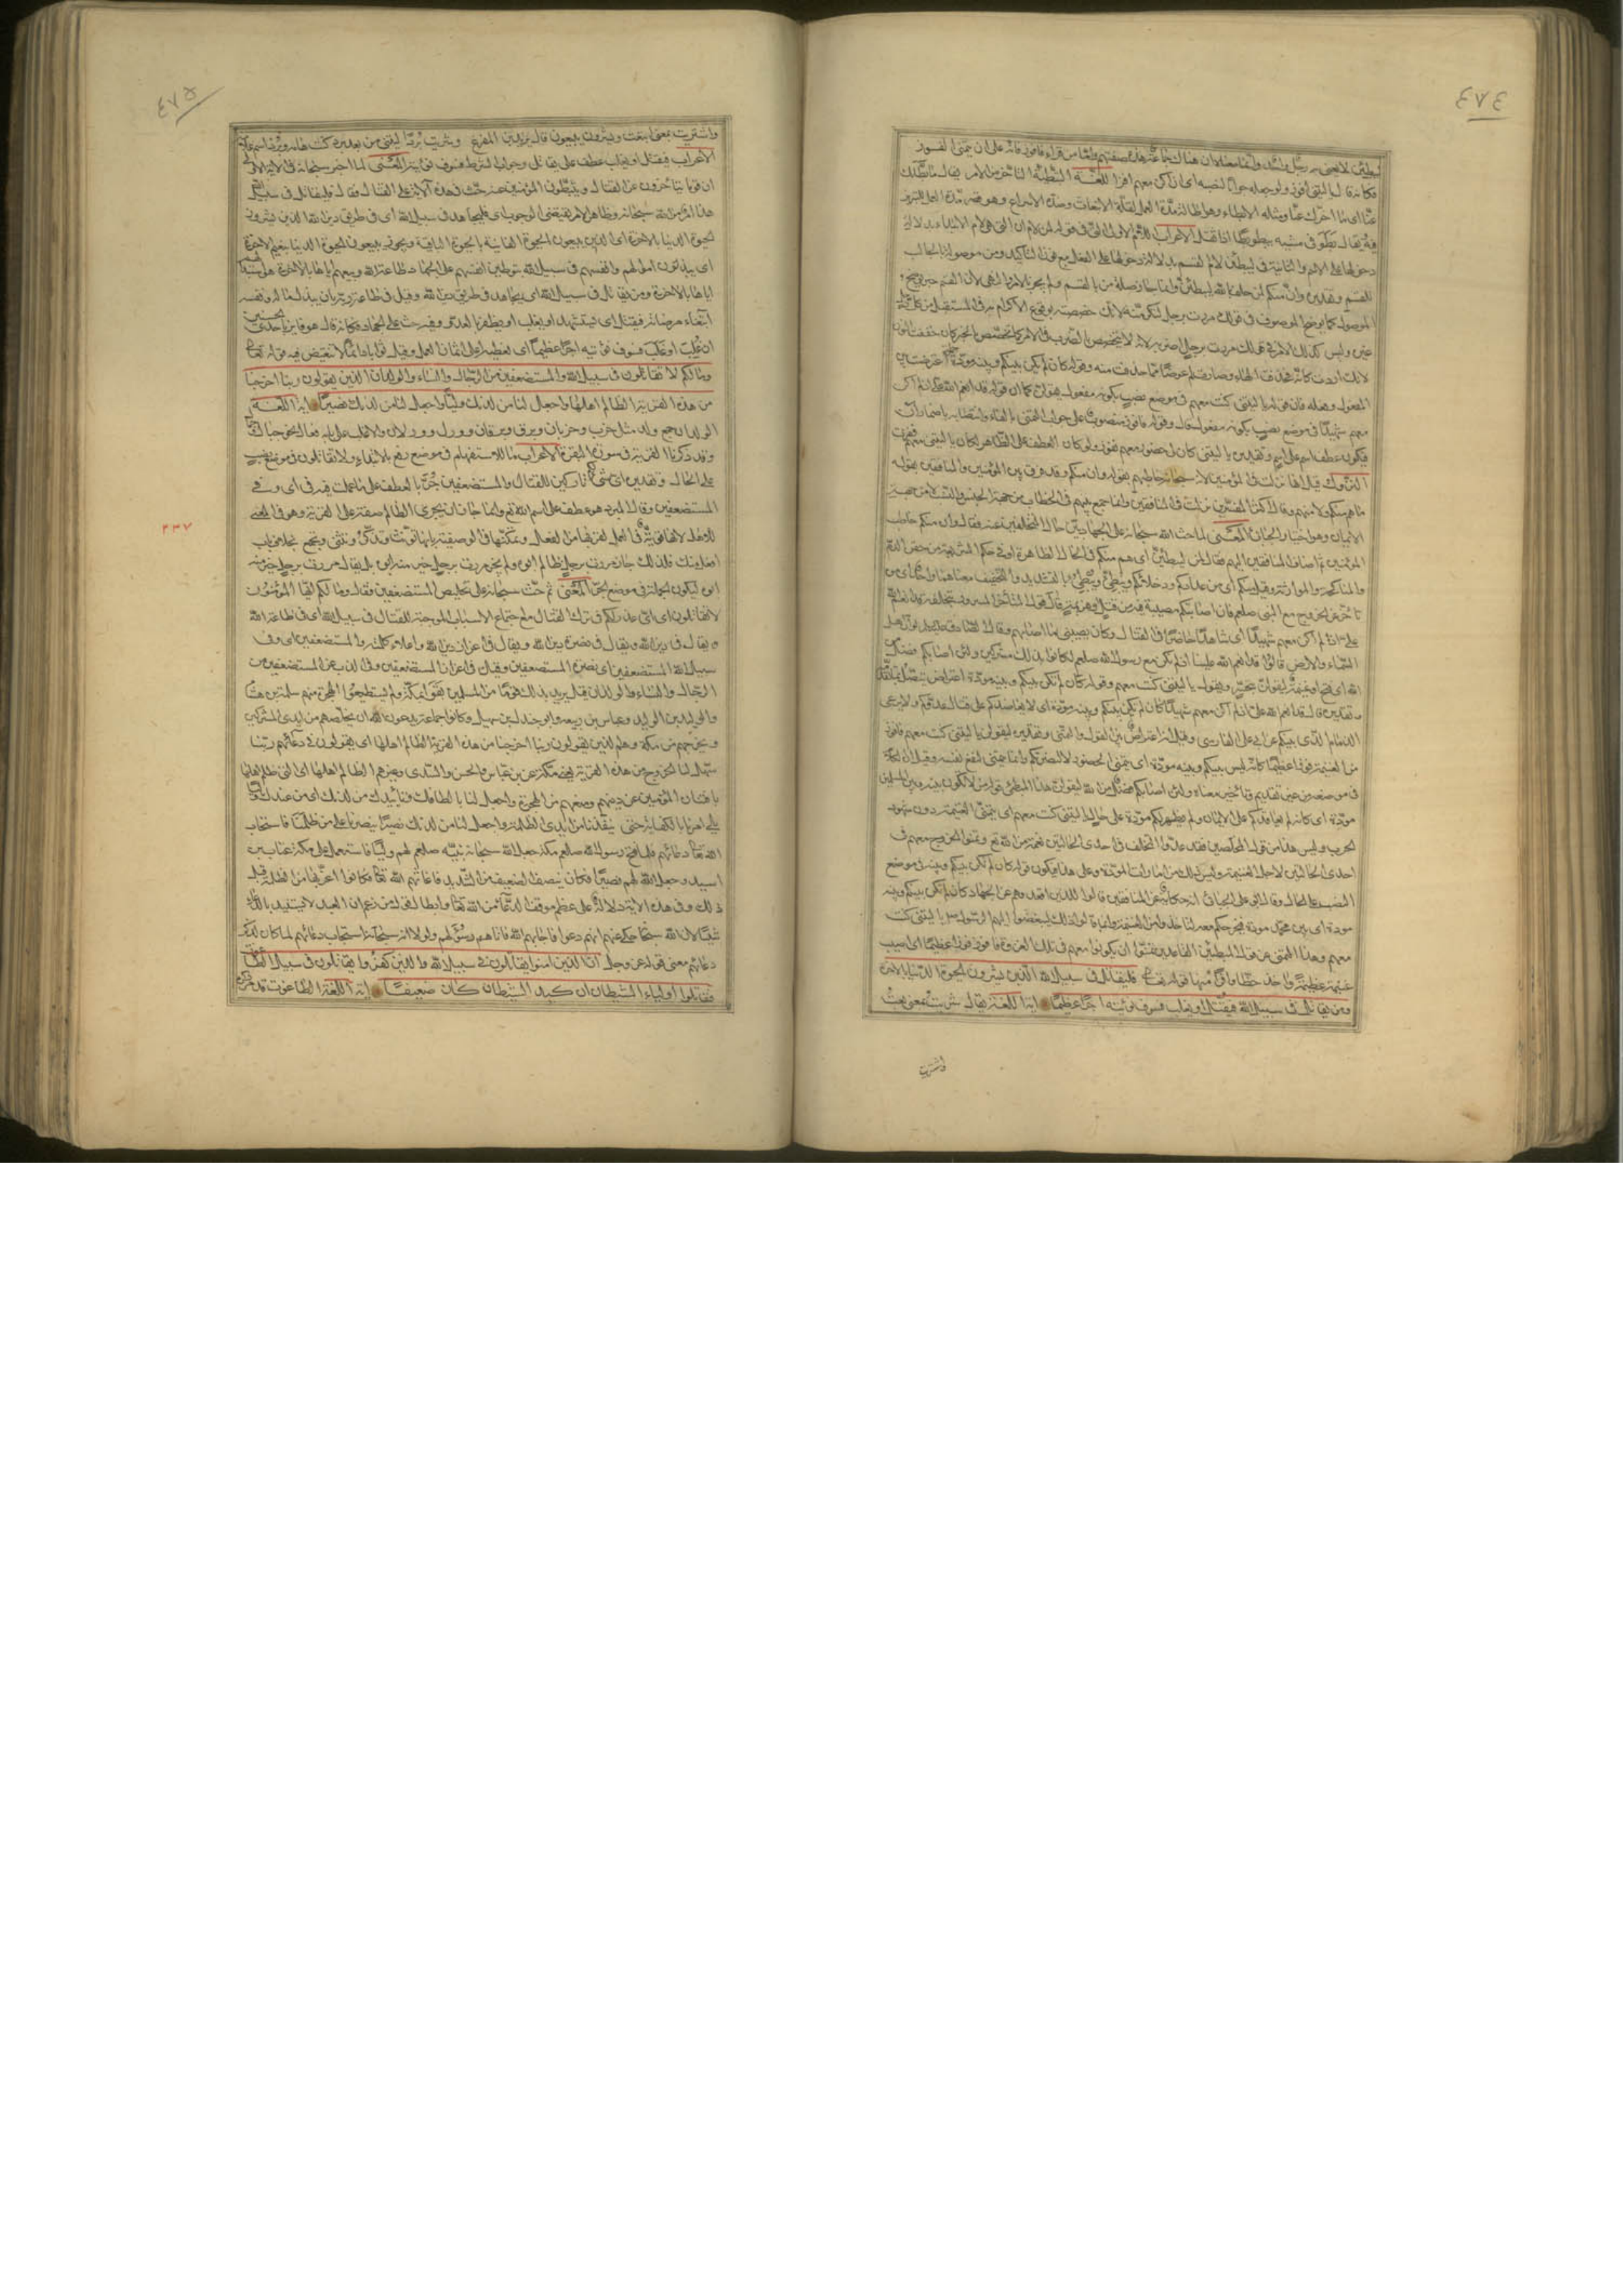 ٤٧٤
ليبطئن لا يعنى به رجل واحد وانما معناه ان هناك جماعة هذه صفتهم واما من قراء فافوز فانه على ان يتمنى الفوز
فكانه قال يا ليتنى افوز ولو جعله جوابا لنصبه اى ان اكن معهم افز اللغة التبطئة التأخر عن الامر يقال ما بطأ بك
عنا اى ما اخرك عنا ومثله الابطاء وهو اطالة مدة العمل لقلة الانبعاث وضده الاسراع وهو قصر مدة العمل للتدبر
فيه يقال بطؤ فى مشيه يبطؤ بطأ اذا ثقل الاعراب اللام الاولى التى فى قوله لمن لام ان التى هى لام الابتداء بدلالة
دخولها على الاسم والثانية فى ليبطئن لام القسم بدلالة دخولها على الفعل مع نون التأكيد ومن موصولة بالجالب
للقسم وتقديره وان منكم لمن حلف بالله ليبطئن وانما جاز صلة من بالقسم ولم يجز بالامر والنهى لان القسم خبر يوضح
الموصول كما يوضح الموصوف فى قولك مررت برجل لتكرمنه لانك خصصته بوقوع الاكرام به فى المستقبل من كل رجل
غيره وليس كذلك الامر فى قولك مررت برجل اضربه لانه لا يتخصص بالضرب فى الامر كما تخصص بالخبر كان خففت النون
لانك اردت كانه فحذفت الهاء وصارت لم عوضا مما حذفت منه وقوله كان لم تكن بينكم وبينه مودة اعترضت بين
المفعول وفعله فان قوله يا ليتنى كنت معهم فى موضع نصب بكونه مفعول يقولن كما ان قوله قد انعم الله على اذ لم اكن
معهم شهيدا فى موضع نصب بكونه مفعول قال وقوله فافوز منصوب على جواب التمنى بالفاء وانتصابه باضمار ان
فيكون عطف اسم على اسم وتقديره يا ليتنى كان لى حضور معهم ففوز ولو كان العطف على الظاهر لكان يا ليتنى معهم ففزت
النزول قيل انها نزلت فى المؤمنين لانه سبحانه خاطبهم بقوله وان منكم وقد فرق بين المؤمنين والمنافقين بقوله
ما هم منكم ولا منهم وقال اكثر المفسرين نزلت فى المنافقين وانما جمع بينهم فى الخطاب من جهة الجنس والنسب لا من جهة
الايمان وهو اختيار الجبائى المعنى لما حث الله سبحانه على الجهاد بين حال المتخلفين عنه فقال وان منكم خاطب
المؤمنين ثم اضاف المنافقين اليهم فقال لمن ليبطئن اى هم منكم فى الحال الظاهرة او فى حكم الشريعة من حقن الدم
والمناكحة والموارثة وقيل منكم اى من عدادكم ودخلائكم ويبطئ ويبطئ بالتشديد والتخفيف معناهما واحد اى من
تأخر عن الخروج مع النبى صلعم فان اصابتكم مصيبة فيه من قتل او هزيمة قال قول الشامت المسرور بتخلفه قد انعم الله
على اذ لم اكن معهم شهيدا اى شاهدا حاضرا فى القتال وكان يصيبنى ما اصابهم وقال الصادق عليه السلام لو ان اهل
السماء والارض قالوا قد انعم الله علينا اذ لم نكن مع رسول الله صلعم لكانوا بذلك مشركين ولئن اصابكم فضل من
الله اى فتح او غنيمة ليقولن يتحسر ويقول يا ليتنى كنت معهم وقوله كان لم تكن بينكم وبينه مودة اعتراض يتصل بما تقدمه
وتقديره قال قد انعم الله على اذ لم اكن معهم شهيدا كان لم تكن بينكم وبينه مودة اى لا يعاضدكم على قتال عدوكم ولا يرعى
الذمام الذى بينكم عن ابى على الفارسى وقيل انه اعتراض بين القول والتمنى وتقديره ليقولن يا ليتنى كنت معهم فافوز
من الغنيمة فوزا عظيما كانه ليس بينكم وبينه مودة اى يتمنى الحضور لا لنصرتكم وانما يتمنى النفع لنفسه وقيل ان الكلام
فى موضعه من غير تقديم وتأخير معناه ولئن اصابكم فضل من الله ليقولن هذا المبطئ قول من لا تكون بينه وبين المسلمين
مودة اى كانه لم يعاقدكم على الايمان ولم يظهر لكم مودة على حال يا ليتنى كنت معهم اى يتمنى الغنيمة دون شهود
الحرب وليس هذا من قول المخلصين فقد عدوا التخلف فى احدى الحالتين نعمة من الله تع وتمنوا الخروج معهم فى
احدى الحالتين لاجل الغنيمة وليس ذلك من امارات المودة وعلى هذا فيكون قوله كان لم تكن بينكم وبينه فى موضع
النصب على الحال وقال ابو على الجبائى انه حكاية عن المنافقين قالوا للذين اقعدوهم عن الجهاد كان لم تكن بينكم وبينه
مودة اى بين محمد مودة فيخرجكم معه لتأخذوا من الغنيمة وانما قالوا ذلك ليبغضوا اليهم الرسول ص يا ليتنى كنت
معهم وهذا التمنى من قول المبطئين القاعدين تمنوا ان يكونوا معهم فى تلك الغزوة فافوز فوزا عظيما اى اصيب
غنيمة عظيمة واخذ حظا وافرا منها قوله تعالى فليقاتل فى سبيل الله الذين يشرون الحيوة الدنيا بالاخرة
ومن يقاتل فى سبيل الله فيقتل او يغلب فسوف نؤتيه اجرا عظيما اية اللغة يقال شريت بمعنى بعت
واشتريت
٤٧٥
واشتريت بمعنى ابتعت ويشرون يبيعون قال يزيد بن المفرغ وشريت بردا ليتنى من بعد برد كنت هامه وبرد اسم غلامه
الاعراب فيقتل او يغلب عطف على يقاتل وجواب الشرط فسوف نؤتيه المعنى لما اخبر سبحانه فى الاية الاولى
ان قوما يتأخرون عن القتال ويثبطون المؤمنين عنه حث فى هذه الاية على القتال فقال فليقاتل فى سبيل الله
هذا امر من الله سبحانه وظاهر الامر يقتضى الوجوب اى فليجاهد فى سبيل الله اى فى طريق دين الله الذين يشرون
الحيوة الدنيا بالاخرة اى الذين يبيعون الحيوة الفانية بالحيوة الباقية ويجوز يبيعون الحيوة الدنيا بنعيم الاخرة
اى يبذلون اموالهم وانفسهم فى سبيل الله بتوطين انفسهم على الجهاد فى طاعة الله وبيعهم اياها بالاخرة هو استبدالهم
اياها بالاخرة ومن يقاتل فى سبيل الله اى يجاهد فى طريق دين الله وقيل فى طاعة ربه بان يبذل ماله ونفسه
ابتغاء مرضاته فيقتل اى يستشهد او يغلب او يظفر بالعدو وفيه حث على الجهاد فكانه قال هو فايز باحدى الحسنيين
ان غُلب او غَلب فسوف نؤتيه اجرا عظيما اى نعطيه اعلى اثمان العمل وقيل ثوابا دائما لا تنغيص فيه قوله تعالى
وما لكم لا تقاتلون فى سبيل الله والمستضعفين من الرجال والنساء والولدان الذين يقولون ربنا اخرجنا
من هذه القرية الظالم اهلها واجعل لنا من لدنك وليا واجعل لنا من لدنك نصيرا اية اللغة
الولدان جمع ولد مثل خرب وخربان وبرق وبرقان وورل وورلان والاغلب على بابه فعال نحو جبال
وقد ذكرنا القرية فى سورة البقرة الاعراب ما للاستفهام فى موضع رفع بالابتداء ولا تقاتلون فى موضع نصب
على الحال وتقديره اى شئ لكم تاركين للقتال والمستضعفين جر بالعطف على ما عملت فيه فى اى وفى
المستضعفين وقال المبرد هو عطف على اسم الله تع وانما جاز ان يجرى الظالم صفة على القرية وهو فى المعنى
للاهل لانها قوية فى العمل لقربها من الفعل وتمكنها فى الوصفية بانها تؤنث وتذكر وتثنى وتجمع بخلاف باب
افعل منك فلذلك جاز مررت برجل ظالم ابوه ولم يجز مررت برجل خير منه ابوه بل يقال مررت برجل خير منه
ابوه ليكون الجملة فى موضع الجر المعنى ثم حث سبحانه على تخليص المستضعفين فقال وما لكم ايها المؤمنون
لا تقاتلون اى اى عذر لكم فى ترك القتال مع اجتماع الاسباب الموجبة للقتال فى سبيل الله اى فى طاعة الله
ويقال فى دين الله ويقال فى نصرة دين الله ويقال فى اعزاز دين الله واعلاء كلمته والمستضعفين اى وفى
سبيل الله المستضعفين اى نصرة المستضعفين وقيل فى اعزاز المستضعفين وفى الذب عن المستضعفين من
الرجال والنساء والولدان قيل يريد بذلك قوما من المسلمين بقوا بمكة ولم يستطيعوا الهجرة منهم سلمة بن هشام
والوليد بن الوليد وعياش بن ربيعة وابو جندل بن سهيل وكانوا جماعة يدعون الله ان يخلصهم من ايدى المشركين
ويخرجهم من مكة وهم الذين يقولون ربنا اخرجنا من هذه القرية الظالم اهلها اى يقولون فى دعائهم ربنا
سهل لنا الخروج من هذه القرية يعنى مكة عن ابن عباس والحسن والسدى وغيرهم الظالم اهلها اى التى ظلم اهلها
بافتتان المؤمنين عن دينهم ومنعهم من الهجرة واجعل لنا بالطافك وتأييدك من لدنك اى من عندك وليا
يلى امرنا بالكفاية حتى ينقذنا من ايدى الظلمة واجعل لنا من لدنك نصيرا ينصرنا على من ظلمنا فاستجاب
الله تعالى دعائهم فلما فتح رسول الله صلعم مكة جعل الله سبحانه نبيه صلعم لهم وليا فاستعمل على مكة عتاب بن
اسيد وجعل الله لهم نصيرا فكان ينصف الضعيف من الشديد فاغاثهم الله تعالى فكانوا اعز بها من الظلمة قبل
ذلك وفى هذه الاية دلالة على عظم موقع الدعاء من الله تعالى وابطال قول من زعم ان العبد لا يستفيد بالدعاء
شيئا لان الله سبحانه حكى عنهم انهم دعوا فاجابهم الله فاتاهم سؤلهم ولولا انه سبحانه استجاب دعائهم لما كان لذكر
دعائهم معنى قوله عز وجل الذين امنوا يقاتلون فى سبيل الله والذين كفروا يقاتلون فى سبيل الطاغوت
فقاتلوا اولياء الشيطان ان كيد الشيطان كان ضعيفا اية اللغة الطاغوت قد ذكرنا
٢٣٧